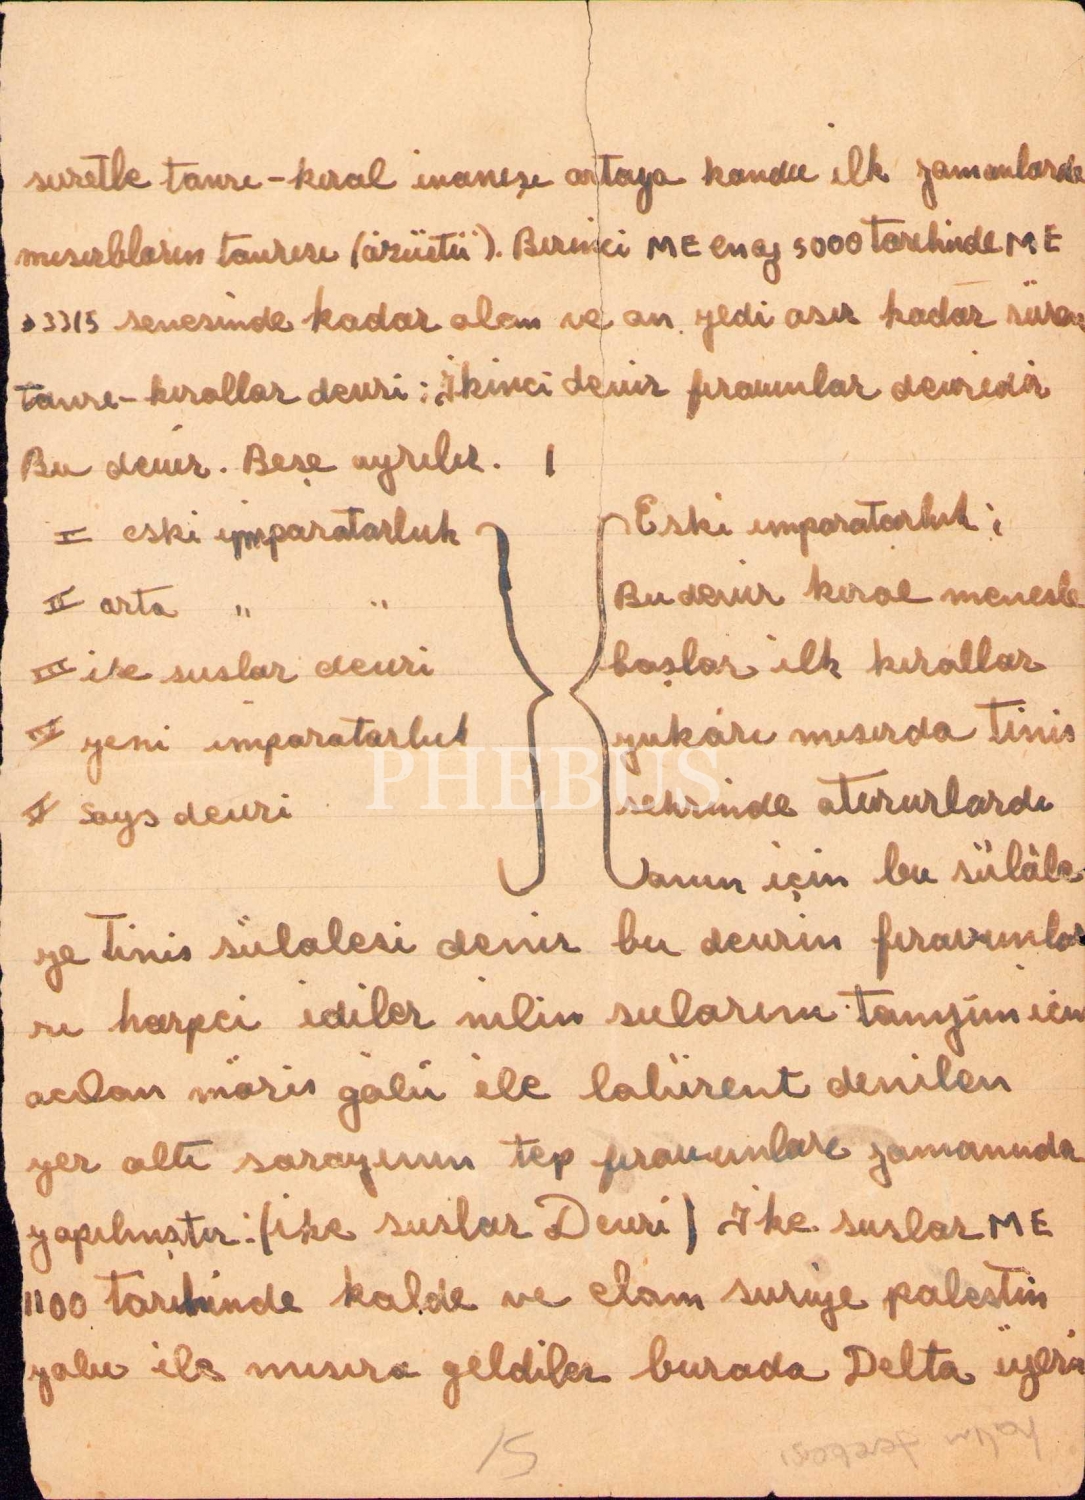 suretle tanrı-kıral inanışı ortaya kondu ilk zamanlarda
mısırlıların tanrısı (özüetü). Birinci ME en az 5000 tarihinde ME
3315 senesinde kadar olan ve on yedi asır kadar süren
tanrı-kırallar devri: İkinci devir fıravunlar devridir
Bu devir. Beşe ayrılır.
I eski imparatorluk
II orta " "
III ike suslar devri
IV yeni imparatorluk
V Says devri
Eski imparatorluk;
Bu devir kıral menesle
başlar ilk kırallar
yukarı mısırda Tinis
şehrinde otururlardı
onun için bu sülâle
ye Tinis sülalesi denir bu devrin fıravunla
rı harpci idiler nilin sularını tanzim için
acılan möris gölü ile labirent denilen
yer altı sarayının tep fıravunları zamanında
yapılmıştır: (ike suslar Devri) İke suslar ME
1100 tarihinde kalde ve elam suriye palestin
yolu ile mısıra geldiler burada Delta üzeri
15
PHEBUS